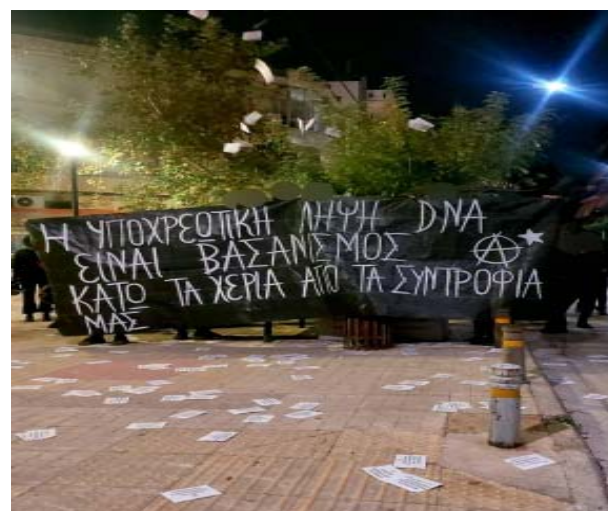 Η ΥΠΟΧΡΕΟΤΙΚΗ ΛΗΨΗ DNA
ΕΙΝΑΙ ΒΑΣΑΝΙΣΜΟΣ
ΚΑΤΟ ΤΑ ΧΕΡΙΑ ΑΠΟ ΤΑ ΣΥΝΤΡΟΦΙΑ
ΜΑΣ